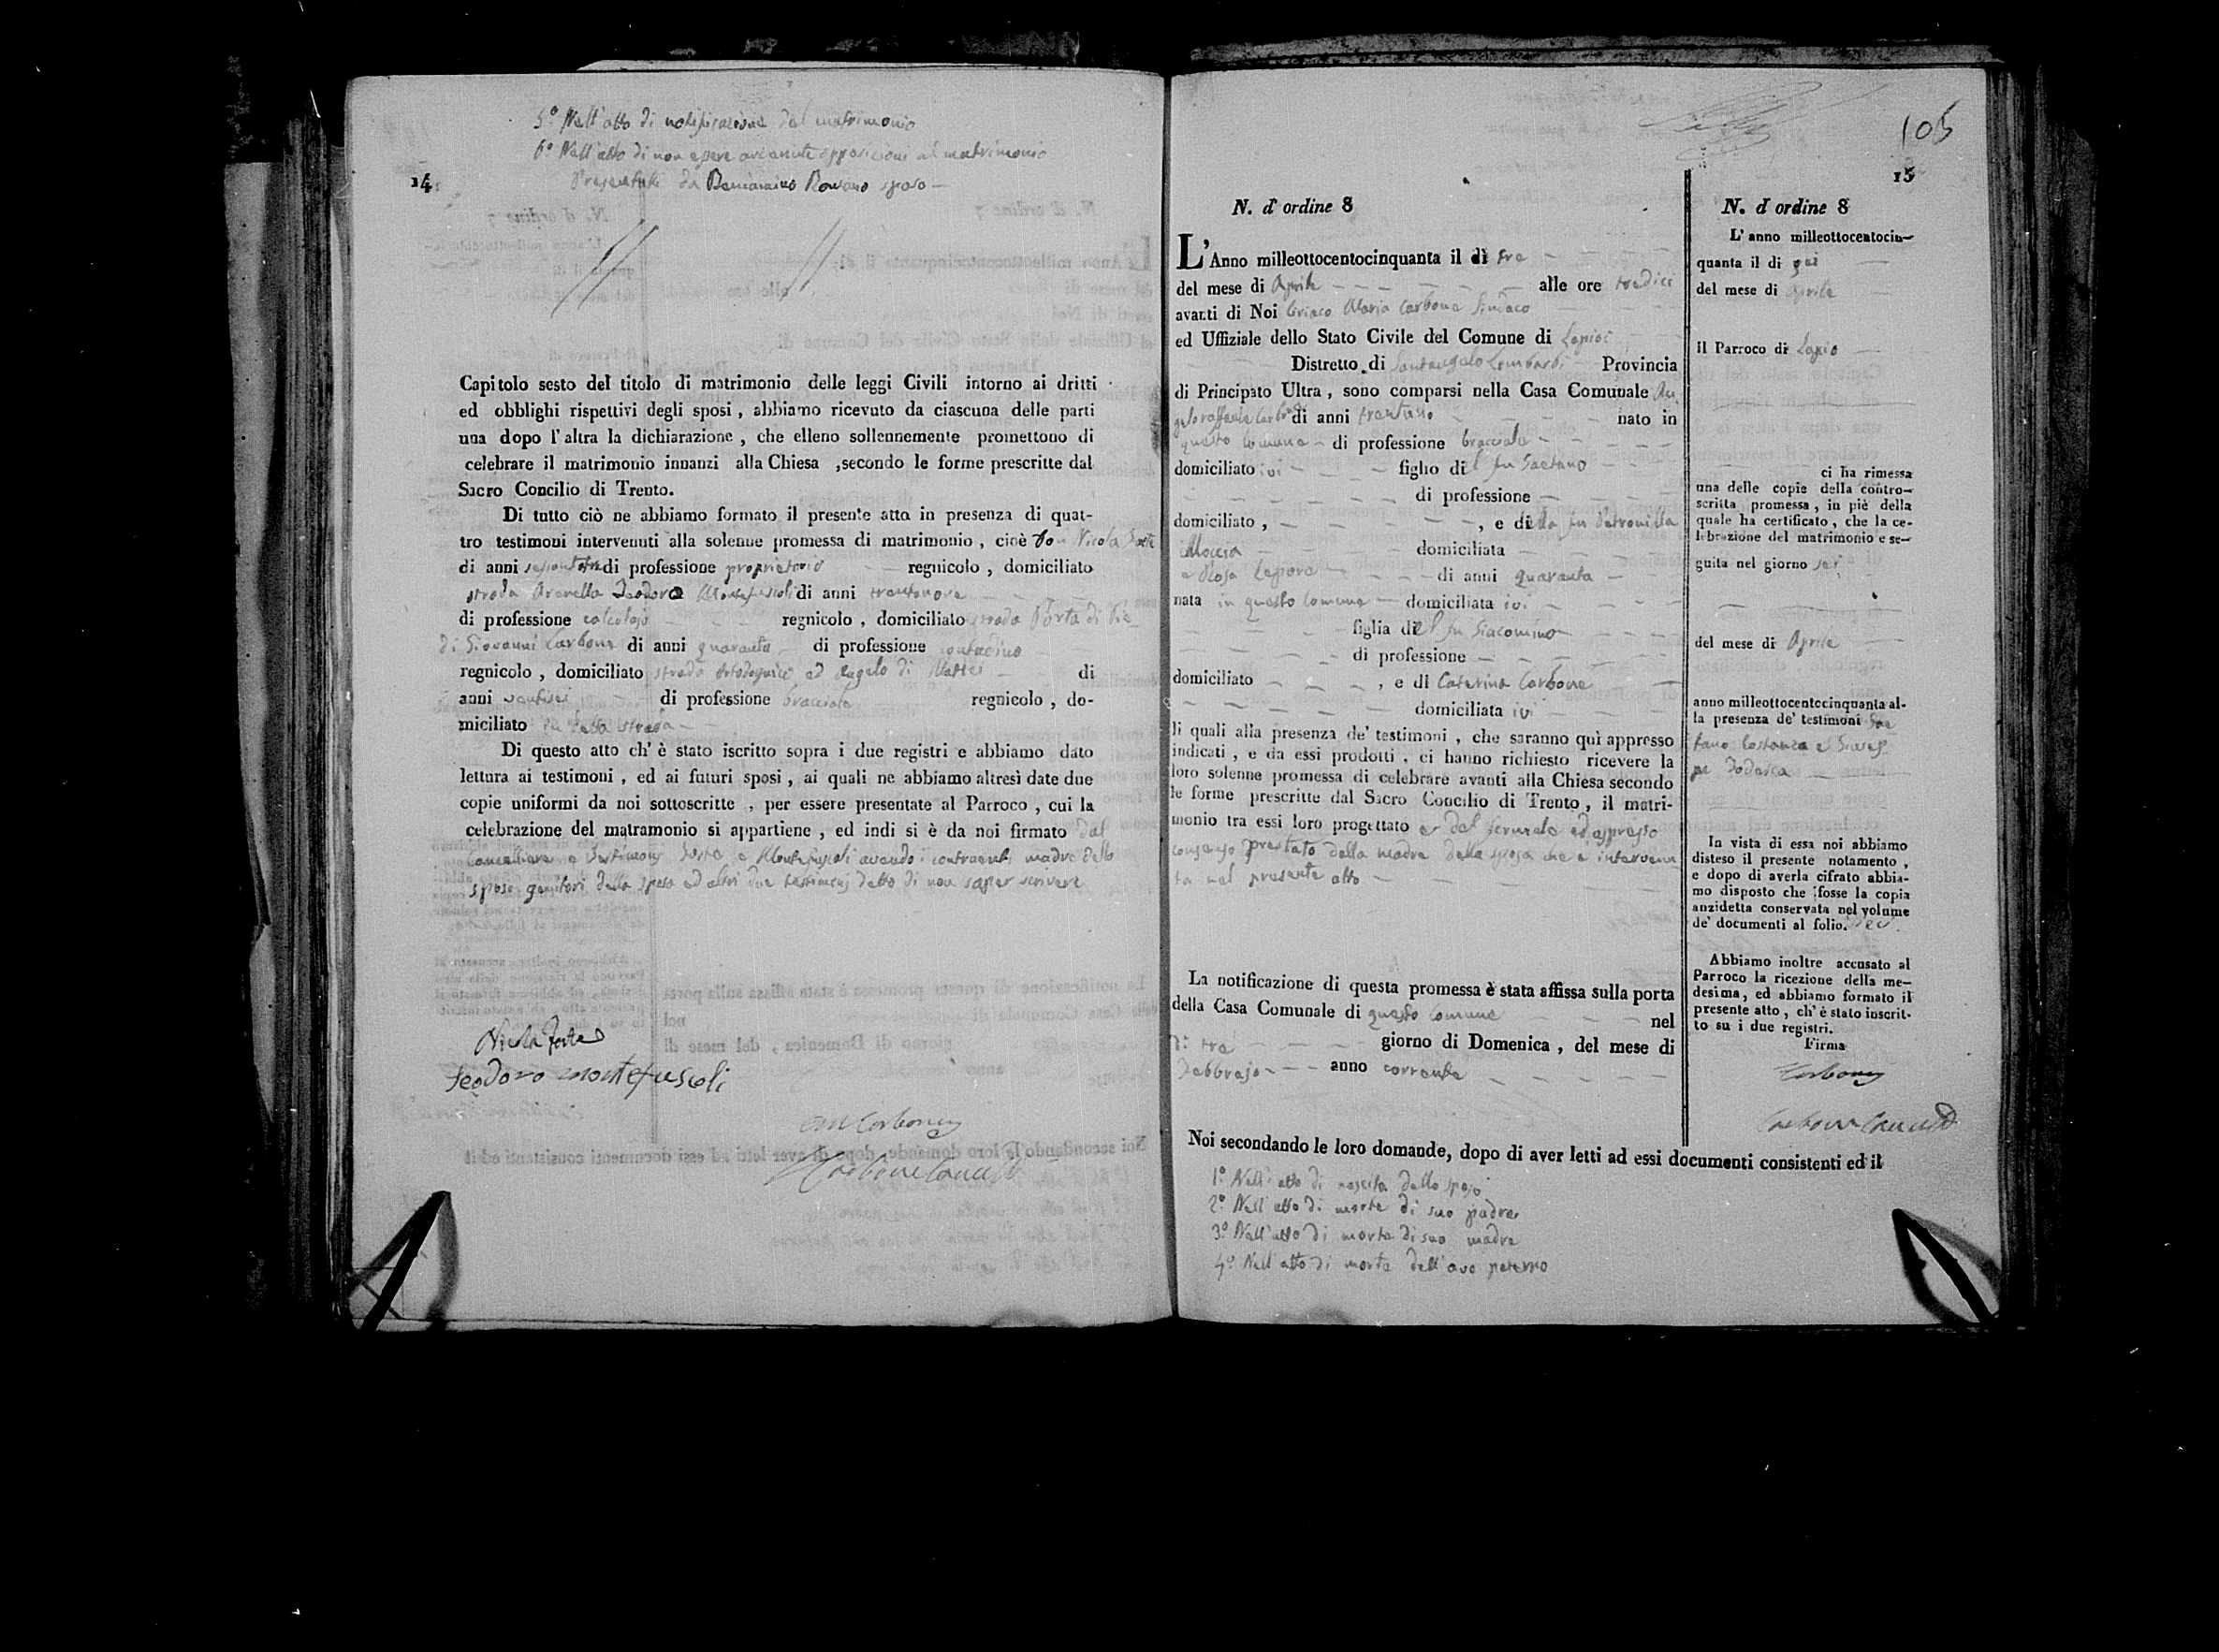 5º Nell'atto di notificazione del matrimonio
6º Nell'atto di non essere avvenute opposizioni al matrimonio
Presentati da Beniamino Romano sposo
14
Capitolo sesto del titolo di matrimonio delle leggi Civili intorno ai dritti
ed obblighi rispettivi degli sposi, abbiamo ricevuto da ciascuna delle parti
una dopo l'altra la dichiarazione, che elleno sollennemente promettono di
celebrare il matrimonio innanzi alla Chiesa, secondo le forme prescritte dal
Sacro Concilio di Trento.
Di tutto ciò ne abbiamo formato il presente atto in presenza di quat-
tro testimoni intervenuti alla solenne promessa di matrimonio, cioè Don Nicola
di anni di professione proprietario regnicolo, domiciliato
strada Teodoro Montefuscoli di anni trentanove
di professione calzolajo regnicolo, domiciliato strada Porta di
di Giovanni Carbone di anni quaranta di professione contadino
regnicolo, domiciliato strada ed Angelo di Mattei di
anni ventisei di professione bracciale regnicolo, do-
miciliato in detta strada
Di questo atto ch'è stato iscritto sopra i due registri e abbiamo dato
lettura ai testimoni, ed ai futuri sposi, ai quali ne abbiamo altresì date due
copie uniformi da noi sottoscritte, per essere presentate al Parroco, cui la
celebrazione del matramonio si appartiene, ed indi si è da noi firmato dal
Cancelliere e testimonj e Montefuscoli avendo i contraenti madre dello
sposo genitori della sposa ed altri due testimonj detto di non saper scrivere
Nicola
Teodoro montefuscoli
Carbone
Carbone Canc
105
15
N. d' ordine 8
L'Anno milleottocentocinquanta il dì tre
del mese di Aprile alle ore tredici
avanti di Noi Ciriaco Maria Carbone Sindaco
ed Uffiziale dello Stato Civile del Comune di
Distretto di Santangelo Lombardi Provincia
di Principato Ultra, sono comparsi nella Casa Comunale An
geloraffaele Carbone di anni trentuno nato in
questo Comune di professione bracciale
domiciliato ivi figlio del fu Gaetano
di professione
domiciliato, , e della fu Petronilla
Moccia domiciliata
e Rosa Lepore di anni quaranta
nata in questo Comune domiciliata ivi
figlia del fu Giacomino
di professione
domiciliato , e di Caterina Carbone
domiciliata ivi
li quali alla presenza de' testimoni, che saranno quì appresso
indicati, e da essi prodotti, ci hanno richiesto ricevere la
loro solenne promessa di celebrare avanti alla Chiesa secondo
le forme prescritte dal Sacro Concilio di Trento, il matri-
monio tra essi loro progettato e del formale ed espresso
consenso prestato dalla madre della sposa che è intervenu
ta nel presente atto
La notificazione di questa promessa è stata affissa sulla porta
della Casa Comunale di questo Comune nel
dì tre giorno di Domenica, del mese di
Febbrajo anno corrente
Noi secondando le loro domande, dopo di aver letti ad essi documenti consistenti ed il
1º Nell'atto di nascita dello sposo
2º Nell'atto di morte di suo padre
3º Nell'atto di morte di sua madre
4º Nell'atto di morte dell'avo paterno
N. d' ordine 8
L'anno milleottocentocin-
quanta il di
del mese di Aprile
il Parroco di Lapio
ci ha rimessa
una delle copie della contro-
scritta promessa, in piè della
quale ha certificato, che la ce-
lebrazione del matrimonio e se-
guita nel giorno sei
del mese di Aprile
anno milleottocentocinquanta al-
la presenza de' testimoni Gae
tano Costanza e Giusep
pe Todesca
In vista di essa noi abbiamo
disteso il presente notamento,
e dopo di averla cifrato abbia-
mo disposto che fosse la copia
anzidetta conservata nel volume
de' documenti al folio.
Abbiamo inoltre accusato al
Parroco la ricezione della me-
desima, ed abbiamo formato il
presente atto, ch'è stato inscrit-
to su i due registri.
Firma
Carbone
Carbone Canc